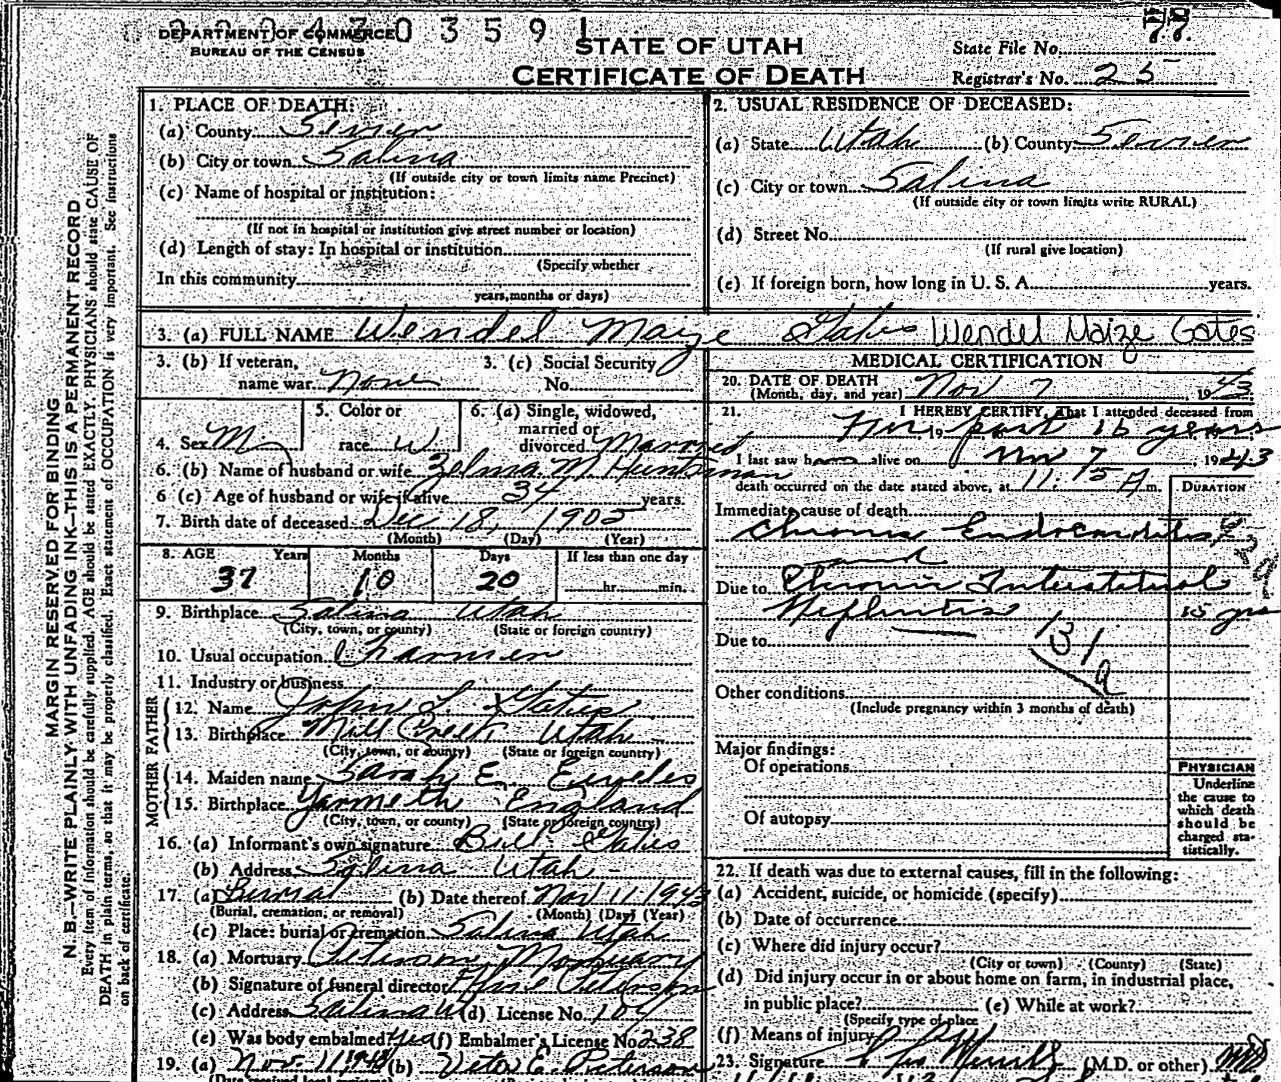 2 2 2 4 3 0 3 5 9 1
DEPARTMENT OF COMMERCE
BUREAU OF THE CENSUS
STATE OF UTAH
CERTIFICATE OF DEATH
State File No. 77
Registrar's No. 25
MARGIN RESERVED FOR BINDING
N. B.—WRITE PLAINLY WITH UNFADING INK—THIS IS A PERMANENT RECORD
Every item of information should be carefully supplied. AGE should be stated EXACTLY. PHYSICIANS should state CAUSE OF
DEATH in plain terms, so that it may be properly classified. Exact statement of OCCUPATION is very important. See instructions
on back of certificate.
1. PLACE OF DEATH:
(a) County Sevier
(b) City or town Salina
(If outside city or town limits name Precinct)
(c) Name of hospital or institution:
(If not in hospital or institution give street number or location)
(d) Length of stay: In hospital or institution
(Specify whether
In this community
years, months or days)
2. USUAL RESIDENCE OF DECEASED:
(a) State Utah (b) County Sevier
(c) City or town Salina
(If outside city or town limits write RURAL)
(d) Street No.
(If rural give location)
(e) If foreign born, how long in U. S. A. years.
3. (a) FULL NAME Wendel Maize Gates Wendel Maize Gates
3. (b) If veteran, name war None
3. (c) Social Security No.
4. Sex M
5. Color or race W
6. (a) Single, widowed, married or divorced Married
6. (b) Name of husband or wife Zelma M Huntsman
6 (c) Age of husband or wife if alive 34 years.
7. Birth date of deceased Dec 18, 1905
(Month) (Day) (Year)
8. AGE Years Months Days If less than one day
37 10 20 hr. min.
9. Birthplace Salina Utah
(City, town, or county) (State or foreign country)
10. Usual occupation
11. Industry or business
FATHER
12. Name John L Gates
13. Birthplace Mill Creek Utah
(City, town, or county) (State or foreign country)
MOTHER
14. Maiden name Sarah E.
15. Birthplace Yarmeth England
(City, town, or county) (State or foreign country)
16. (a) Informant's own signature Bill Gates
(b) Address Salina Utah
17. (a) Burial (b) Date thereof Nov 11 1943
(Burial, cremation, or removal) (Month) (Day) (Year)
(c) Place: burial or cremation Salina Utah
18. (a) Mortuary Peterson Mortuary
(b) Signature of funeral director Peterson
(c) Address Salina U (d) License No. 104
(e) Was body embalmed? Yes (f) Embalmer's License No. 238
19. (a) Nov. 11, 1943 (b) E. Peterson
MEDICAL CERTIFICATION
20. DATE OF DEATH
(Month, day, and year) Nov 7, 1943.
21. I HEREBY CERTIFY, That I attended deceased from
For past 15 years
I last saw h alive on Nov 7, 1943
death occurred on the date stated above, at 11:15 A m.
DURATION
Immediate cause of death
Chronic Endocarditis
and
Due to Chronic Interstitial
Nephritis 15 yrs
Due to
131a
Other conditions
(Include pregnancy within 3 months of death)
Major findings:
Of operations
Of autopsy
PHYSICIAN
Underline
the cause to
which death
should be
charged sta-
tistically.
22. If death was due to external causes, fill in the following:
(a) Accident, suicide, or homicide (specify)
(b) Date of occurrence
(c) Where did injury occur?
(City or town) (County) (State)
(d) Did injury occur in or about home on farm, in industrial place,
in public place? (e) While at work?
(Specify type of place
(f) Means of injury
23. Signature (M.D. or other) MD